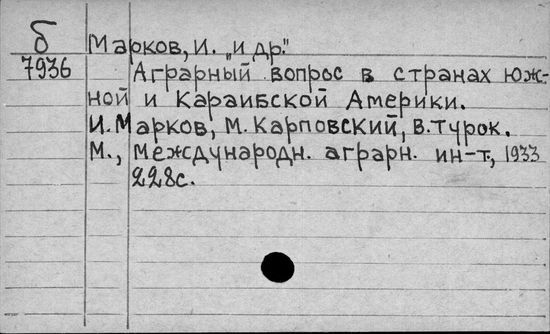 б
Марков, И. „и др."
7936
Аграрный вопрос в странах Юж-
ной и Караибской Америки.
И. Марков, М. Карповский, В. Турок.
М., Международн. аграрн. ин-т., 1933
228с.